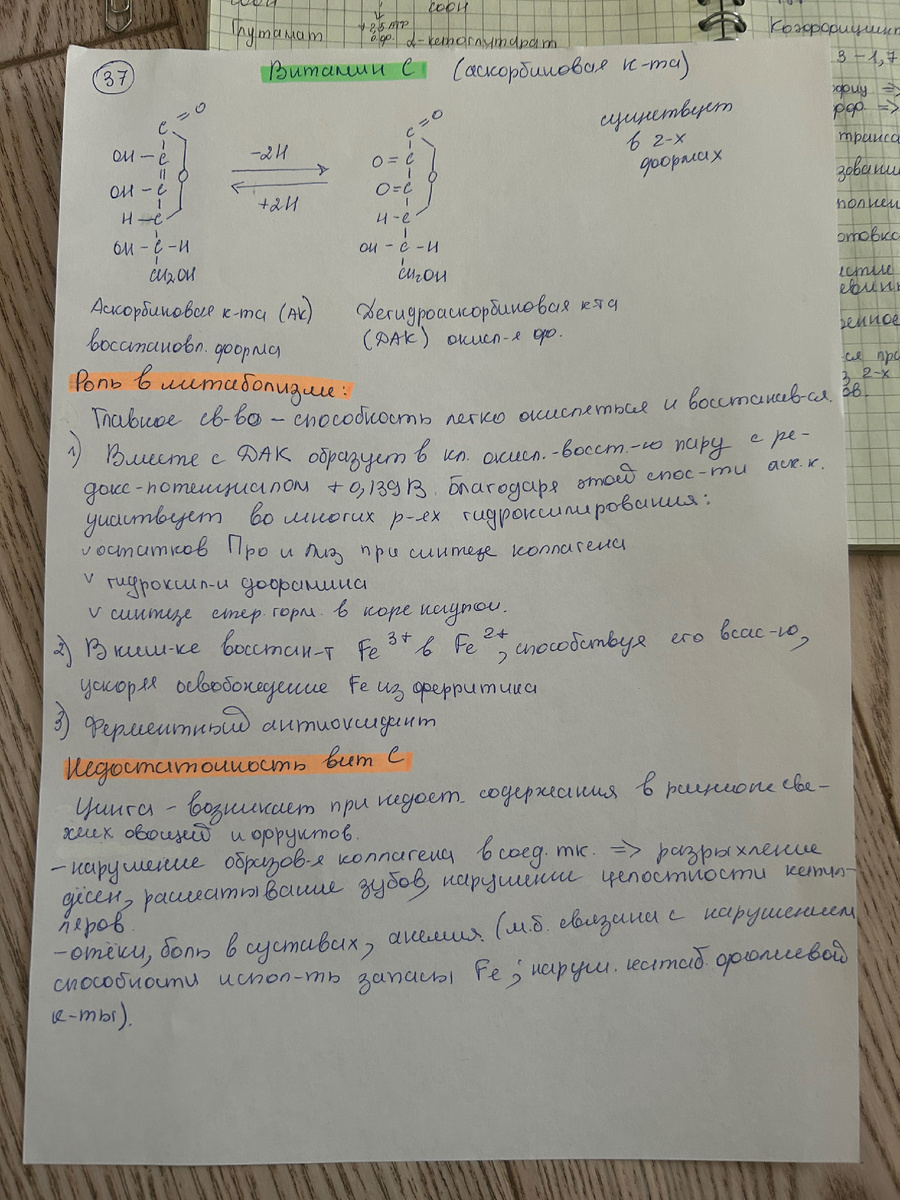 соон
Глутамат
α-кетоглутарат
Коэффициент
3 – 1,7
37
Витамин С (аскорбиновая к-та)
существует
в 2-х
формах
C=O
OH–C
OH–C
H–C
OH–C–H
CH₂OH
O
-2H
+2H
C=O
O=C
O=C
H-C
OH–C–H
CH₂OH
O
Аскорбиновая к-та (АК)
восстановл. форма
Дегидроаскорбиновая к-та
(ДАК) окисл-я ф.
Роль в метаболизме:
Главное св-во – способность легко окисляться и восстанав-ся.
1) Вместе с ДАК образует в кл. окисл.-восст-ю пару с ре-
докс-потенциалом +0,139В. Благодаря этой спос-ти аск.к.
участвует во многих р-ях гидроксилирования:
v остатков Про и Лиз при синтезе коллагена
v гидроксил-и дофамина
v синтезе стер. горм. в коре надпоч.
2) В киш-ке восстан-т Fe³⁺ в Fe²⁺, способствуя его всас-ю,
ускоряя освобождение Fe из ферритина
3) Ферментный антиоксидант
Недостаточность вит С
Цинга – возникает при недост. содержания в рационе све-
жих овощей и фруктов.
– нарушение образов-я коллагена в соед. тк. => разрыхление
дёсен, расшатывание зубов, нарушение целостности капил-
ляров.
– отёки, боль в суставах, анемия (м.б. связана с нарушением
способности испол-ть запасы Fe; наруш. катаб. фолиевой
к-ты).